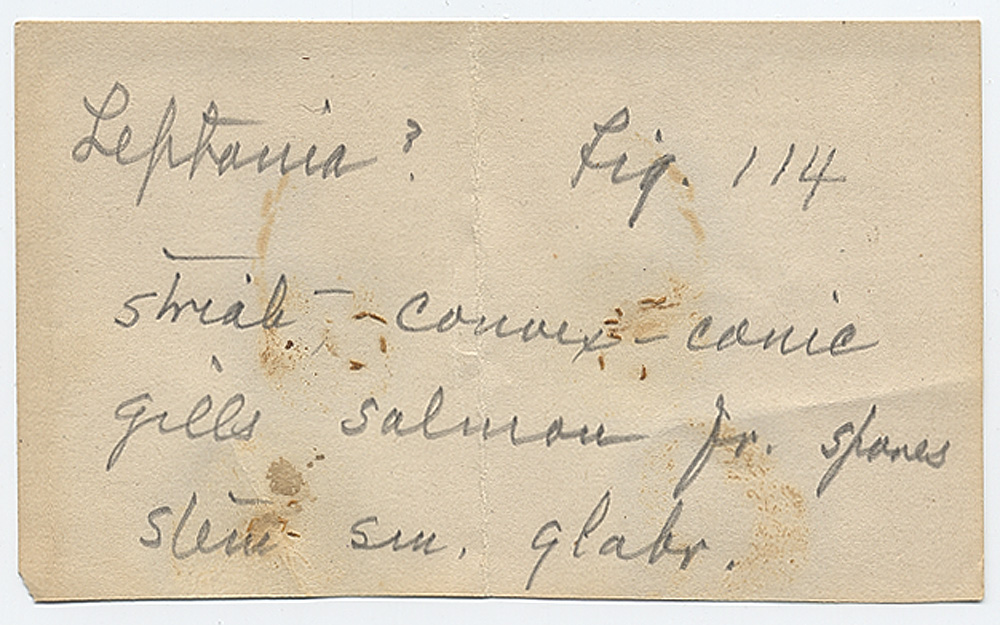 Leptonia ? Fig. 114
striate - convex - conic
gills salmon fr. spores
stem sm. glabr.